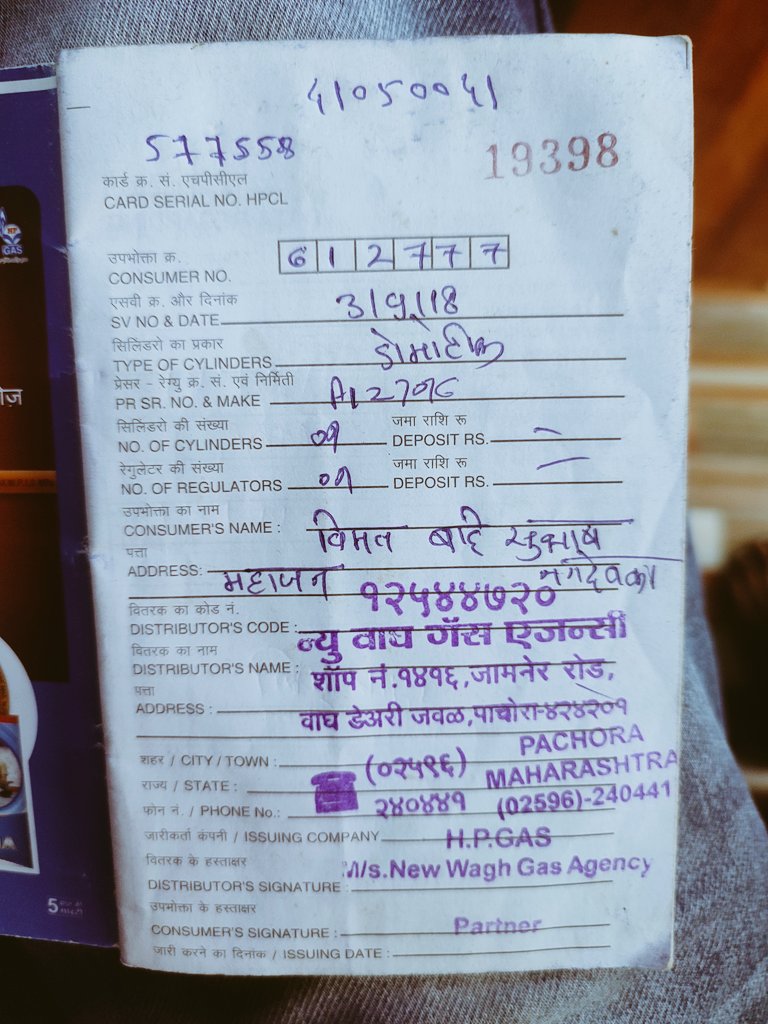 41050041
577558
19398
कार्ड क्र. सं. एचपीसीएल
CARD SERIAL NO. HPCL
उपभोक्ता क्र.
CONSUMER NO. 612777
एसवी क्र. और दिनांक
SV NO & DATE 3/9/18
सिलिंडरो का प्रकार
TYPE OF CYLINDERS डोमेस्टीक
प्रेसर - रेग्यु क्र. सं. एवं निर्मिती
PR SR. NO. & MAKE
सिलिंडरो की संख्या जमा राशि रू
NO. OF CYLINDERS 01 DEPOSIT RS. –
रेगुलेटर की संख्या जमा राशि रू
NO. OF REGULATORS 01 DEPOSIT RS. –
उपभोक्ता का नाम
CONSUMER'S NAME : विमल बाई सुभाष
पत्ता
ADDRESS: महाजन
वितरक का कोड नं. १२५४४७२०
DISTRIBUTOR'S CODE : न्यु वाघ गॅस एजन्सी
वितरक का नाम
DISTRIBUTOR'S NAME : शॉप नं.१४१६,जामनेर रोड,
पत्ता
ADDRESS : वाघ डेअरी जवळ,पाचोरा-४२४२०१
PACHORA
शहर / CITY / TOWN : (०२५९६) MAHARASHTRA
राज्य / STATE :
फोन नं. / PHONE No.: २४०४४१ (02596)-240441
जारीकर्ता कंपनी / ISSUING COMPANY H.P.GAS
वितरक के हस्ताक्षर M/s.New Wagh Gas Agency
DISTRIBUTOR'S SIGNATURE :
उपभोक्ता के हस्ताक्षर
CONSUMER'S SIGNATURE : Partner
जारी करने का दिनांक / ISSUING DATE :
GAS
5